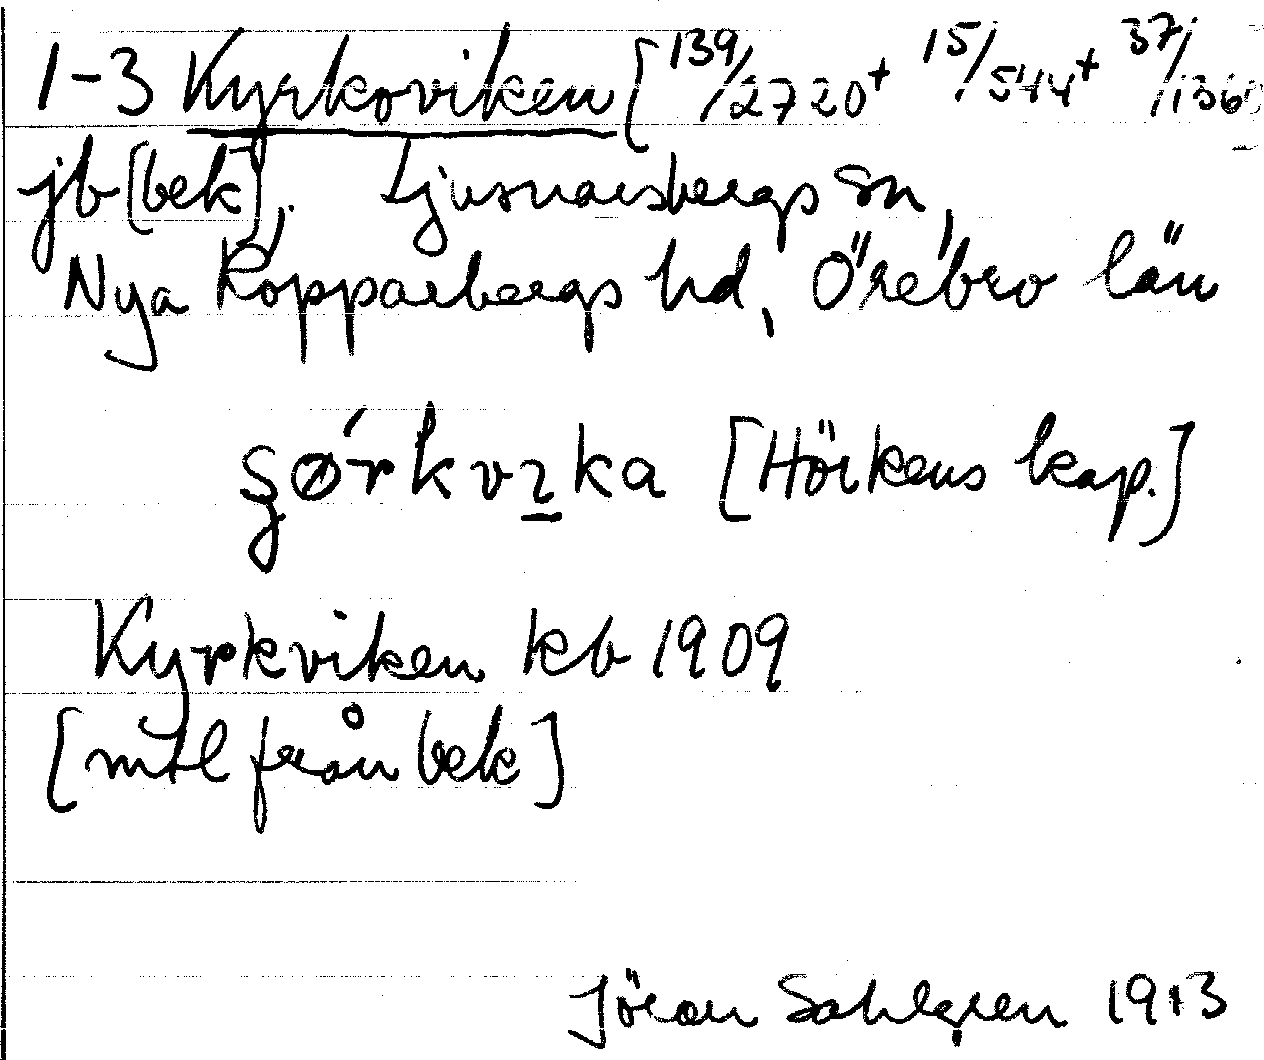 1-3 Kyrkoviken [139/2720+ 15/544+ 37/1360
jb [bek], Ljusnarsbergs sn,
Nya Kopparbergs hd, Örebro län
[Hörkens kap.]
Kyrkviken kb 1909
[mtl från bek]
Jöran Sahlgren 1913